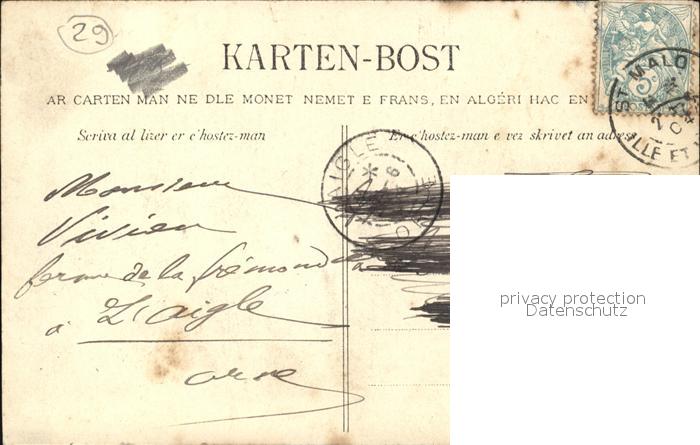 29
KARTEN-BOST
AR CARTEN MAN NE DLE MONET NEMET E FRANS, EN ALGÉRI HAC EN
Scriva al lizer er c'hostez-man
Er c'hostez-man e vez skrivet an adress
ST MALO
VILLE ET
5c
L'AIGLE
ORNE
Monsieur
Vivien
ferme de la frémondière
à L'aigle
orne
privacy protection
Datenschutz